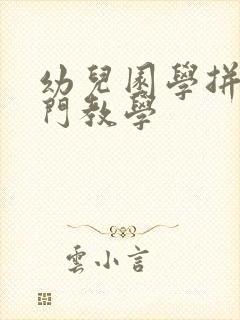 幼兒園學拼
門教學
雲小言